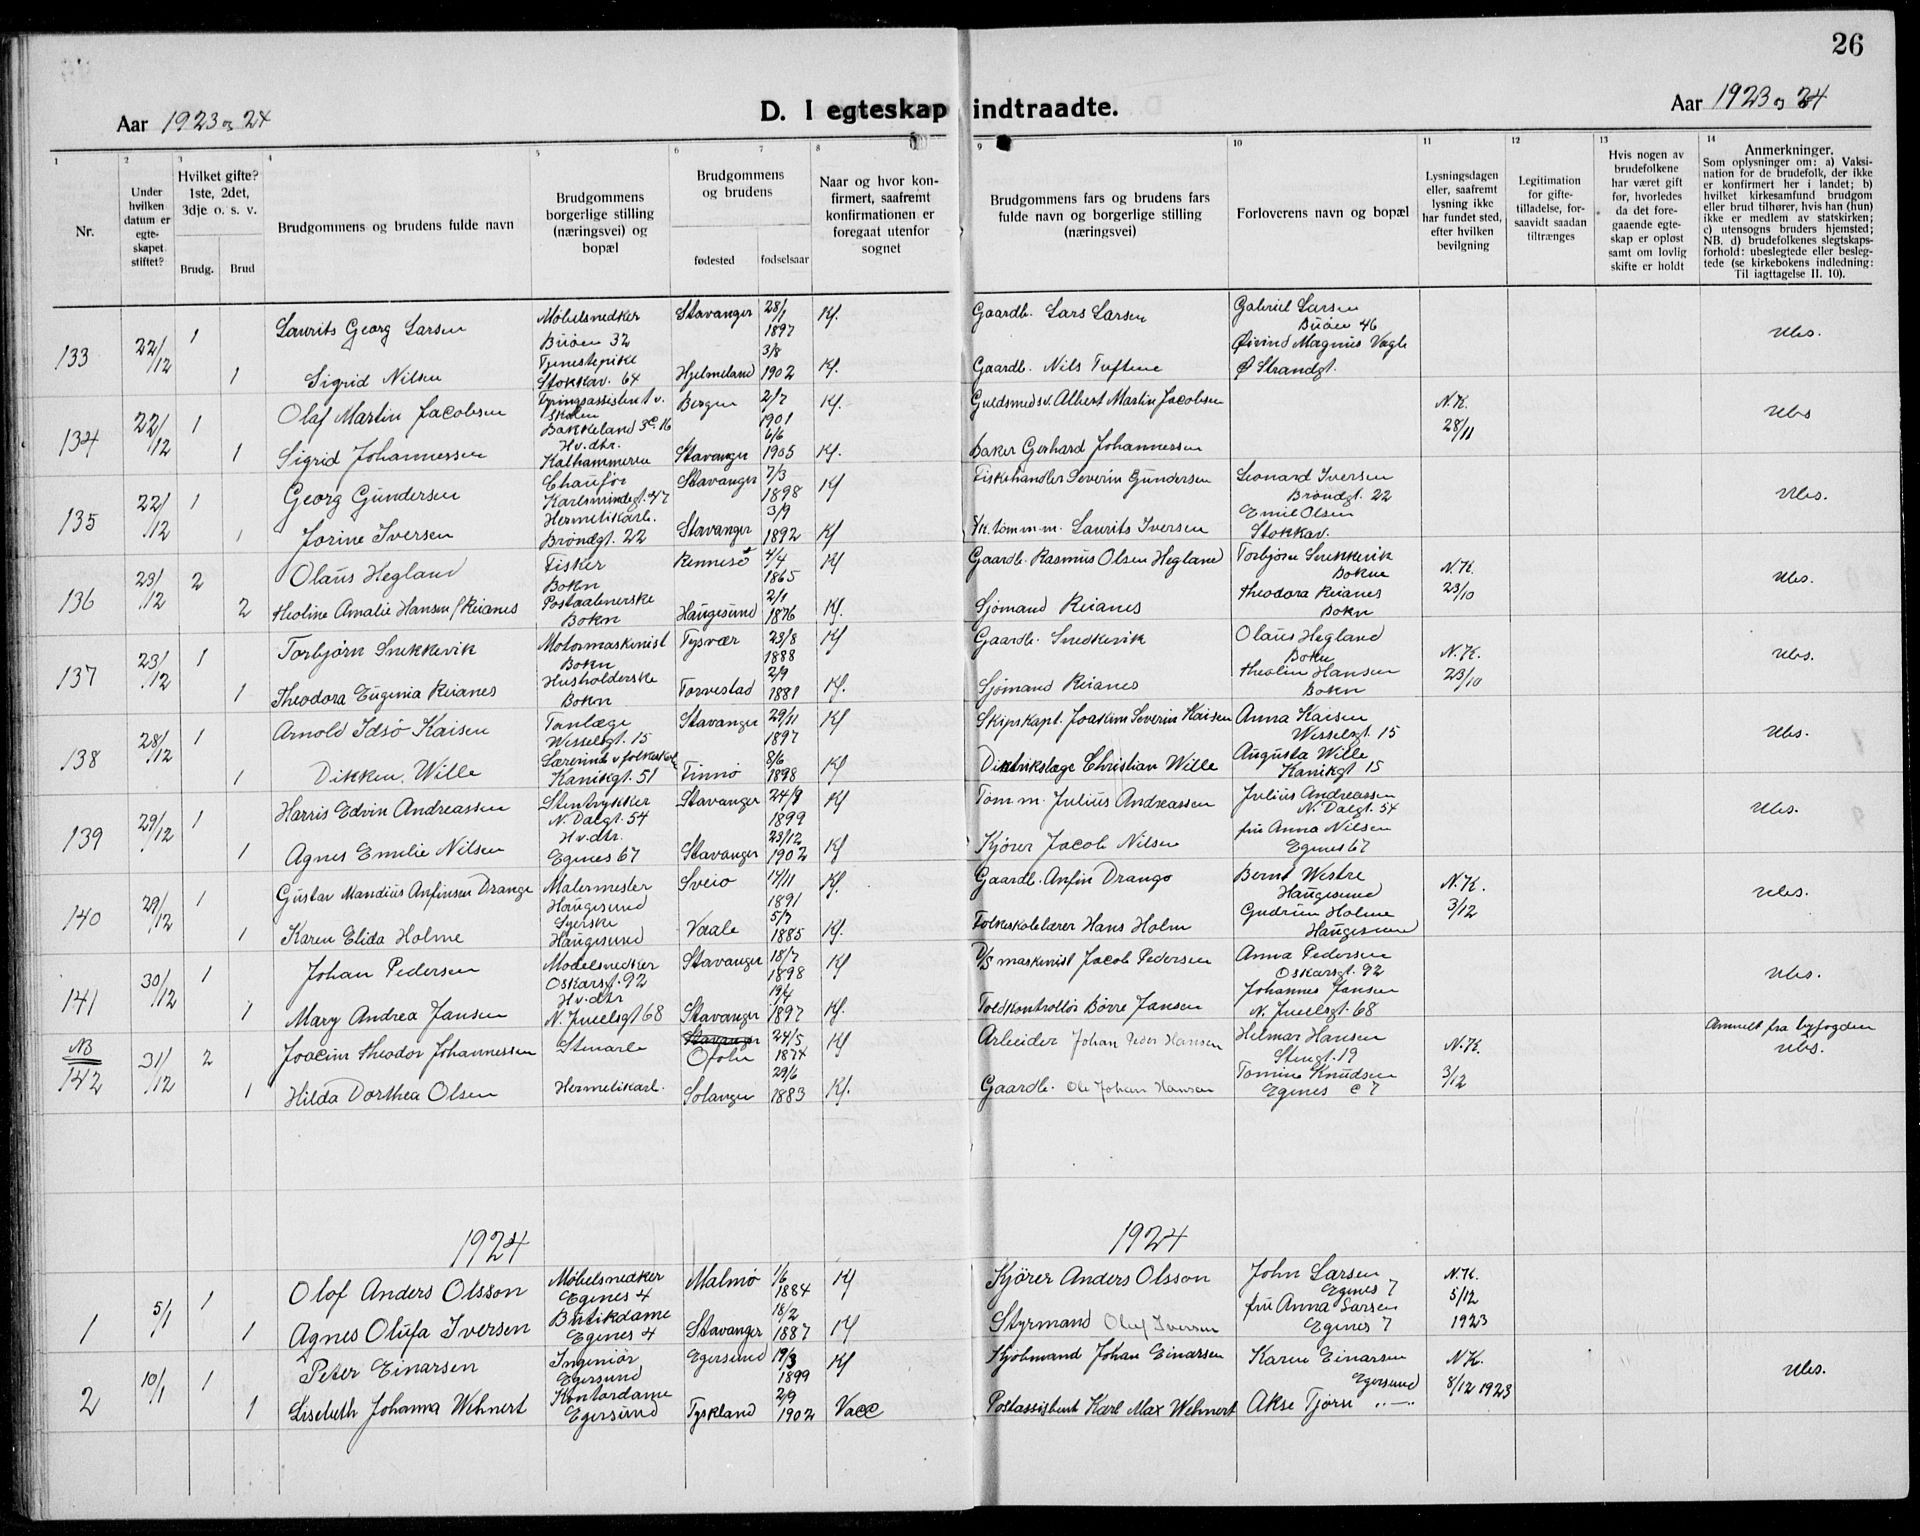 26
Aar 1923 og 24
D. I egteskap indtraadte.
Aar 1923 og 24
1 2 3 4 5 6 7 8 9 10 11 12 13 14
Nr.
Under hvilken datum er egte-skapet stiftet?
Hvilket gifte? 1ste, 2det, 3dje o. s. v.
Brudg. Brud
Brudgommens og brudens fulde navn
Brudgommens borgerlige stilling (næringsvei) og bopæl
Brudgommens og brudens
fødested fødselsaar
Naar og hvor kon-firmert, saafremt konfirmationen er foregaat utenfor sognet
Brudgommens fars og brudens fars fulde navn og borgerlige stilling (næringsvei)
Forloverens navn og bopæl
Lysningsdagen eller, saafremt lysning ikke har fundet sted, efter hvilken bevilgning
Legitimation for gifte-tilladelse, for-saavidt saadan tiltrænges
Hvis nogen av brudefolkene har været gift før, hvorledes da det fore-gaaende egte-skap er opløst samt om lovlig skifte er holdt
Anmerkninger.
Som oplysninger om: a) Vaksi-nation for de brudefolk, der ikke er konfirmert her i landet; b) hvilket kirkesamfund brudgom eller brud tilhører, hvis han (hun) ikke er medlem av statskirken; c) utensogns bruders hjemsted; NB. d) brudefolkenes slegtskaps-forhold: ubeslegtede eller besleg-tede (se kirkebokens indledning: Til iagttagelse II. 10).
133 22/12 1 Laurits Georg Larsen Møbelsnedker Buöen 32 Stavanger 28/1 1897 Kf. Gaardb. Lars Larsen Gabriel Larsen Buöen 46 Ubs.
1 Sigrid Nilsen Tjenestepike Stokkav. 64 Hjelmeland 3/8 1902 Kf. Gaardb. Nils Tuftene Øivind Magnus Vagle Ø Strandgt.
134 22/12 1 Olaf Martin Jacobsen Bakkeland 3c. 16 Bergen 2/7 1901 Kf. Guldsmedsv. Albert Martin Jacobsen N.K. 28/11 Ubs
1 Sigrid Johannessen Hv.dtr. Kalhammeren Stavanger 6/6 1905 Kf. Baker Gerhard Johannessen
135 22/12 1 Georg Gundersen Chaufør Karlsmindegt. 47 Stavanger 7/3 1898 Kf Fiskehandler Severin Gundersen Leonard Iversen Brøndgt. 22 Ubs.
1 Jorine Iversen Hermetikarb. Brøndgt. 22 Stavanger 3/9 1892 Kf tømm.m. Laurits Iversen Emil Olsen Stokkav.
136 23/12 2 Olaus Hegland Fisker Bokn Rennesö 4/4 1865 Kf Gaardb. Rasmus Olsen Hegland Torbjörn Snekkevik Bokn N.K. 23/10 Ubs.
2 Theoline Amalie Hansen f. Reianes Postaabnerske Bokn Haugesund 2/1 1876 Kf. Sjömand Reianes Theodora Reianes Bokn
137 23/12 1 Torbjørn Snekkevik Motormaskinist Bokn Tysvær 23/8 1888 Kf Gaardb. Snedkevik Olaus Hegland Bokn N.K. 23/10 Ubs.
1 Theodora Eugenia Reianes Husholderske Bokn Torvestad 2/9 1881 Kf. Sjömand Reianes Theolin Hansen Bokn
138 28/12 1 Arnold Idsø Kaisen Tanlæge Wesselsgt. 15 Stavanger 29/11 1897 Kf Skipskapt. Joakim Severin Kaisen Anna Kaisen Wesselsgt. 15 Ubs.
1 Dikken Wille Lærerinde v folkeskolen Kanikgt. 51 Finnö 8/6 1898 Kf Distriktslæge Christian Wille Augusta Wille Kanikgt 15
139 29/12 1 Harris Edvin Andreassen Stentrykker N. Dalgt. 54 Stavanger 24/9 1899 Kf Tøm.m. Julius Andreassen Julius Andreassen N. Dalgt. 54 Ubs.
1 Agnes Emilie Nilsen Hv.dtr. Egenes 67 Stavanger 23/12 1902 Kf Kjører Jacob Nilsen fru Anna Nilsen Egenes 67
140 29/12 1 Gustav Mandius Anfinsen Drange Malermester Haugesund Sveio 17/11 1891 Kf. Gaardb. Anfin Drange Bernt Westre Haugesund N.K. 3/12 Ubs.
1 Karen Elida Holme Syerske Haugesund Vaale 5/7 1885 Kf. Folkeskolelærer Hans Holm Gudrun Holme Haugesund
141 30/12 1 Johan Pedersen Modelsnedker Oskarsgt. 92 Stavanger 18/7 1898 Kf D/S maskinist Jacob Pedersen Anna Pedersen Oskarsgt. 92 Ubs.
1 Mary Andrea Jansen Hv.dtr N. Juelsgt 68 Stavanger 19/4 1897 Kf. Toldkontrollør Börre Jansen Johannes Jansen N. Juelsgt. 68
NB 142 31/12 2 Joacim Theodor Johannessen Stenarb. Stavanger Ofoten 24/5 1874 Kf Arbeider Johan Peder Hansen Helmar Hansen Stengt. 19 N.K. 3/12 Anmelt fra byfogden Ubs.
1 Hilda Dorthea Olsen Hermetikarb. Solanger 29/6 1883 Kf. Gaardb. Ole Johan Hansen Tomine Knudsen Egenes C 7
1924 1924
1 5/1 1 Olof Anders Olsson Møbelsnedker Egenes 4 Malmö 1/6 1884 Kf Kjører Anders Olsson John Larsen Egenes 7 N.K. 5/12 1923
1 Agnes Olufa Iversen Butikdame Egenes 4 Stavanger 18/2 1887 Kf Styrmand Oluf Iversen fru Anna Larsen Egenes 7
2 10/1 1 Peter Einarsen Ingeniör Egersund Egersund 19/3 1899 Kf Kjöbmand Johan Einarsen Karen Einarsen Egersund N.K. 8/12 1923 Ubs.
1 Liselieth Johanna Wehnert Kontordame Egersund Tyskland 2/9 1902 Vacc Postassistent Karl Max Wehnert Akse Tjörn „—